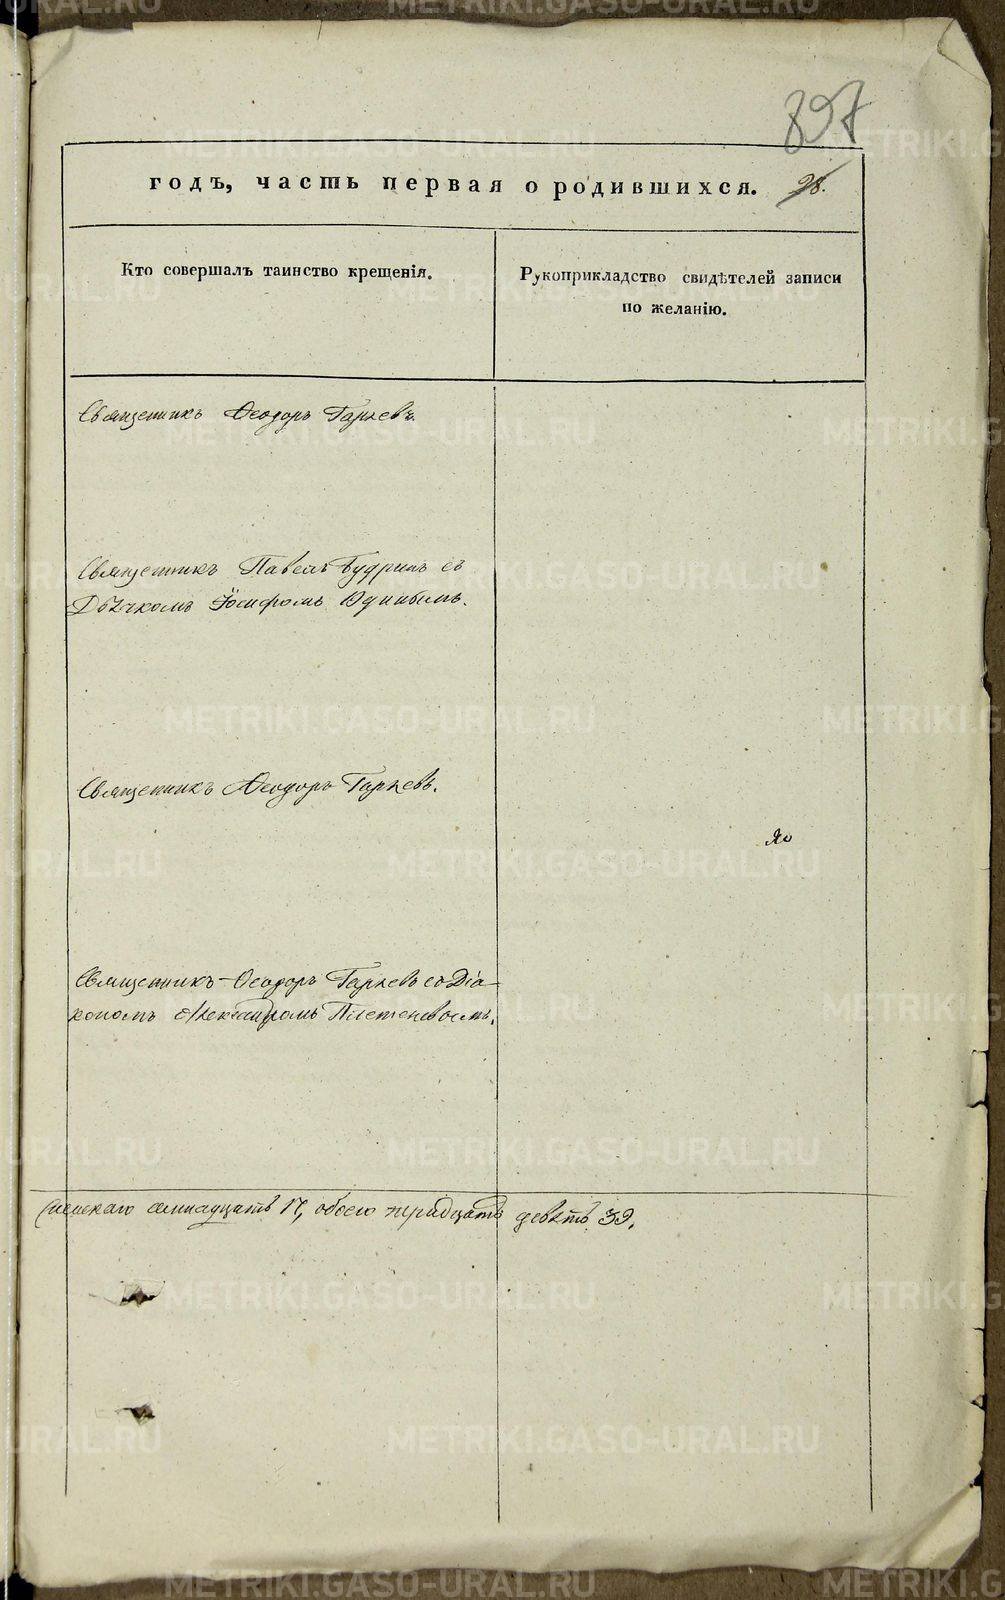 897
годъ, часть первая о родившихся. 98.
Кто совершалъ таинство крещенія.
Рукоприкладство свидѣтелей записи
по желанію.
Священникъ Ѳеодоръ
Священникъ Павелъ Будринъ съ
Дьячкомъ Іосифомъ
Священникъ Ѳеодоръ
Священникъ Ѳеодоръ съ Діа-
кономъ Александромъ Плетеневымъ.
женскаго семнадцать 17, обоего тридцать девять 39.
METRIKI.GASO-URAL.RU